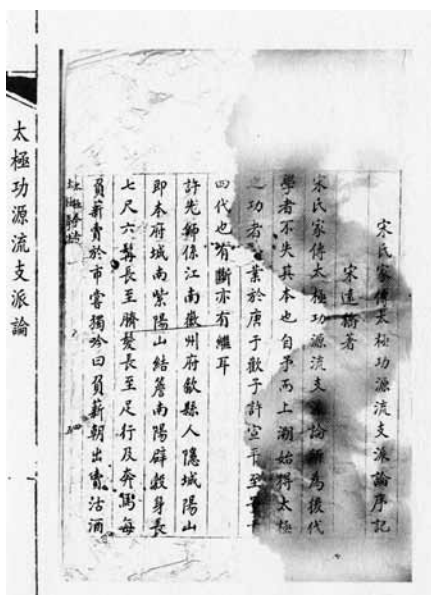 宋氏家傳太極功源流支派論序記
宋遠橋著
宋氏家傳太極功源流支論所為後代
學者不失其本也自予而上溯始得太極
之功者業於庚于歡子許宣平至
四代也有斷亦有繼耳
許先師係江南徽州府歙縣人隱城陽山
即本府城南紫陽山結簷南陽辟穀身長
七尺六髯長至臍髮長至足行及奔馬每
負薪賣於市當獨吟曰負薪朝出賣沽酒
太極功源流支派論